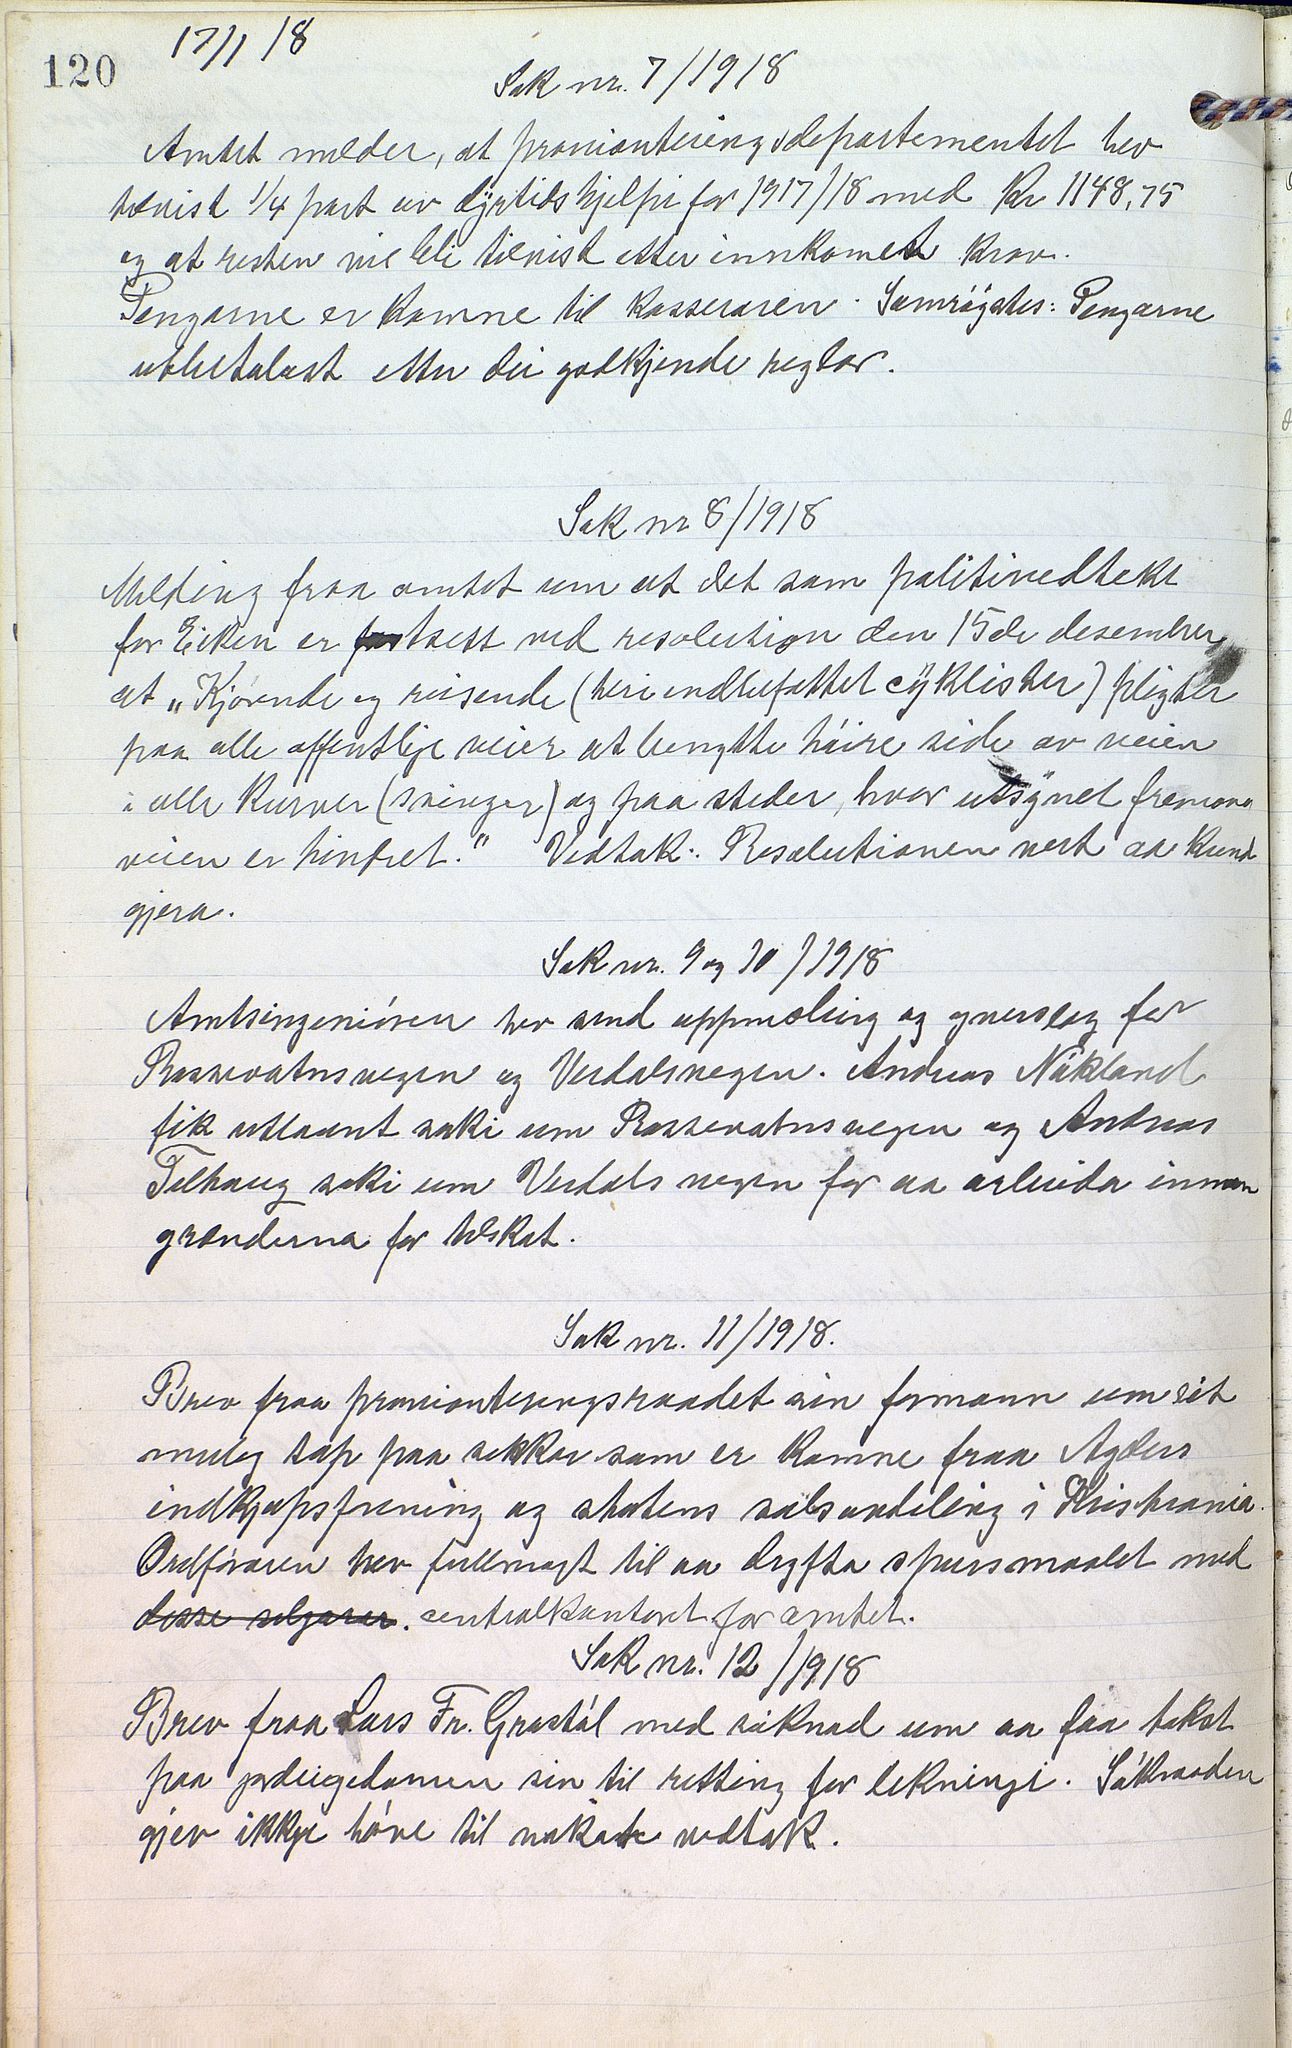 120
17/1 18
Sak nr. 7/1918
Amtet melder, at provianteringsdepartementet hev
tilvist 1/4 part av dyrtidshjelpi for 1917/18 med Kr 1148,75
og at resten vil bli tilvist etter innkomet krav.
Pengarne er komne til kasseraren. Samrøystes: Pengarne
utbetalast etter dei godkjende reglar.
Sak nr 8/1918
Melding fraa amtet um at det som politivedtekt
for Eiken er fastsett ved resolution den 15de desember,
at „Kjørende og reisende (heri indbefattet cyklister) pligter
paa alle offentlige veier at benytte høire side av veien
i alle kurver (svinger) og paa steder, hvor utsynet fremover
veien er hindret." Vedtak: Resolutionen vert aa kund-
gjera.
Sak nr. 9 og 10/1918
Amtsingeniøren hev send uppmæling og yverslag for
Rossevatnsvegen og Verdalsvegen. Andreas Nökland
fik utlaant saki um Rossevatnsvegen og Andreas
Telhaug saki um Verdalsvegen for aa arbeida innan
grænderna for tilskot.
Sak nr. 11/1918.
Brev fraa provianteringsraadet sin formann um eit
muleg tap paa sekker som er komne fraa Agders
indkjøpsforening og statens salsavdeling i Kristiania.
Ordføraren hev fullmagt til aa drøfta spursmaalet med
disse selgarar. centralkontoret for amtet.
Sak nr. 12/1918
Brev fraa Lars Fr. Grostøl med søknad um aa faa takst
paa jordeigedomen sin til retting for likningi. Søknaden
gjev ikkje høve til nokot vedtak.